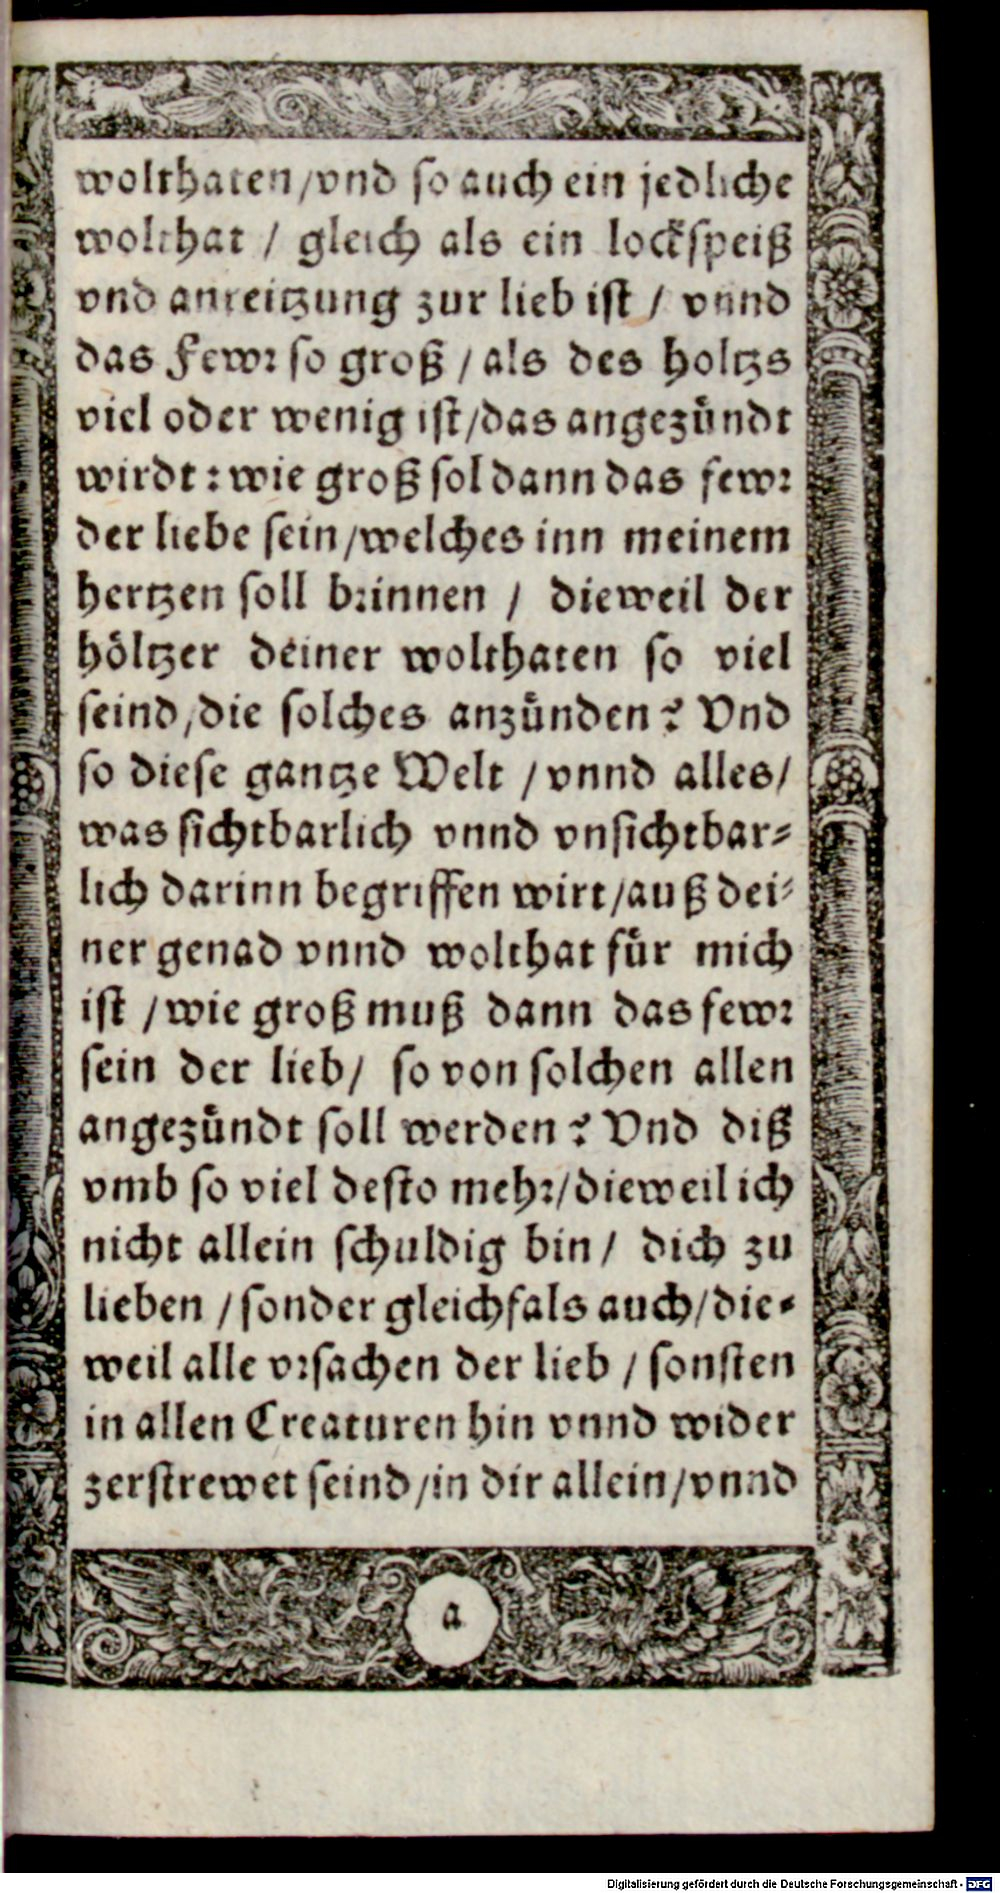 wolthaten/vnd so auch ein jedliche
wolthat / gleich als ein lockspeiß
vnd anreitzung zur lieb ist / vnnd
das Fewr so groß / als des holtzs
viel oder wenig ist/das angezündt
wirdt: wie groß sol dann das fewr
der liebe sein/welches inn meinem
hertzen soll brinnen / dieweil der
höltzer deiner wolthaten so viel
seind/die solches anzünden? Vnd
so diese gantze Welt / vnnd alles/
was sichtbarlich vnnd vnsichtbar-
lich darinn begriffen wirt/auß dei-
ner genad vnnd wolthat für mich
ist / wie groß muß dann das fewr
sein der lieb/ so von solchen allen
angezündt soll werden? Vnd diß
vmb so viel desto mehr/dieweil ich
nicht allein schuldig bin/ dich zu
lieben / sonder gleichfals auch/die-
weil alle vrsachen der lieb / sonsten
in allen Creaturen hin vnnd wider
zerstrewet seind/in dir allein/vnnd
a
Digitalisierung gefördert durch die Deutsche Forschungsgemeinschaft - DFG